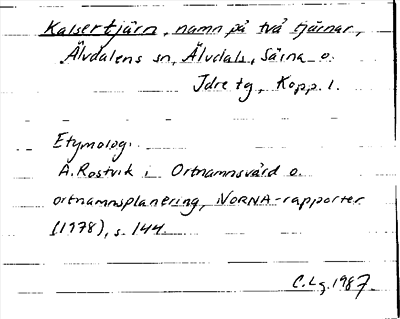 Kalsertjärn, namn på två tjärnar,
Älvdalens sn, Älvdals, Särna o.
Idre tg, Kopp. l.
Etymologi.
A. Rostvik i Ortnamnsvård o.
ortnamnsplanering, NORNA-rapporter
(1978), s. 144.
C. Lg. 1987